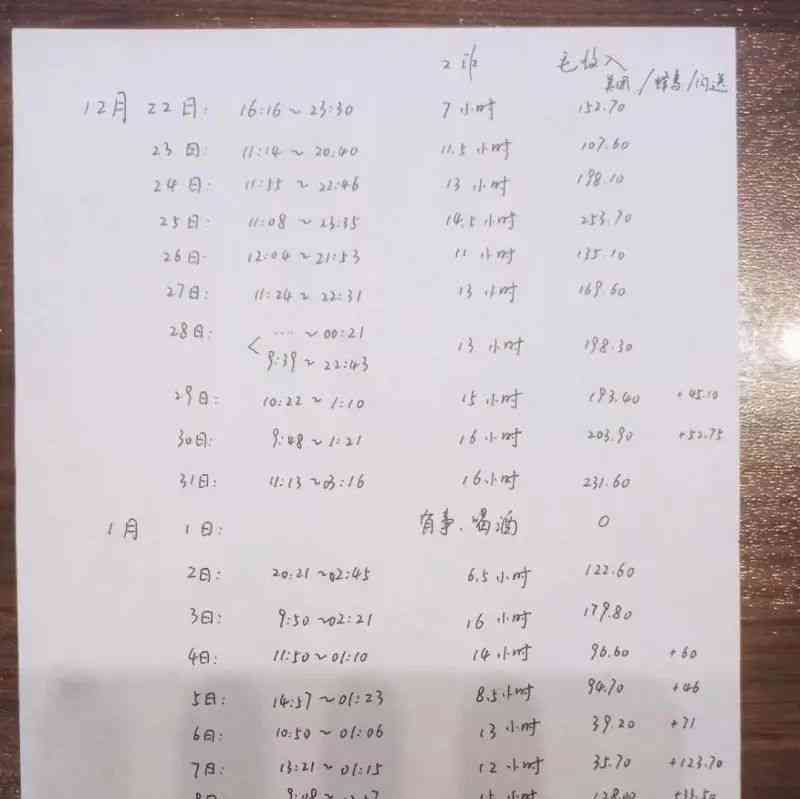 工作 毛收入
美团/蜂鸟/闪送
12月 22日: 16:16~23:30 7小时 152.70
23日: 11:14~20:40 11.5小时 107.60
24日: 11:55~22:46 13小时 198.10
25日: 11:08~23:35 14.5小时 253.70
26日: 12:04~21:53 11小时 135.10
27日: 11:24~22:31 13小时 169.60
28日: < ····~00:21
9:39~22:43 13小时 198.30
29日: 10:22~1:10 15小时 193.40 +45.10
30日: 9:48~1:21 16小时 203.90 +52.75
31日: 11:13~03:16 16小时 231.60
1月 1日: 有事、喝酒 0
2日: 20:21~02:45 6.5小时 122.60
3日: 9:50~02:21 16小时 179.80
4日: 11:50~01:10 14小时 96.60 +60
5日: 14:57~01:23 8.5小时 94.70 +46
6日: 10:50~01:06 13小时 39.20 +71
7日: 13:21~01:15 12小时 35.70 +123.70
8日: 9:08 小时 128.00 +33.50